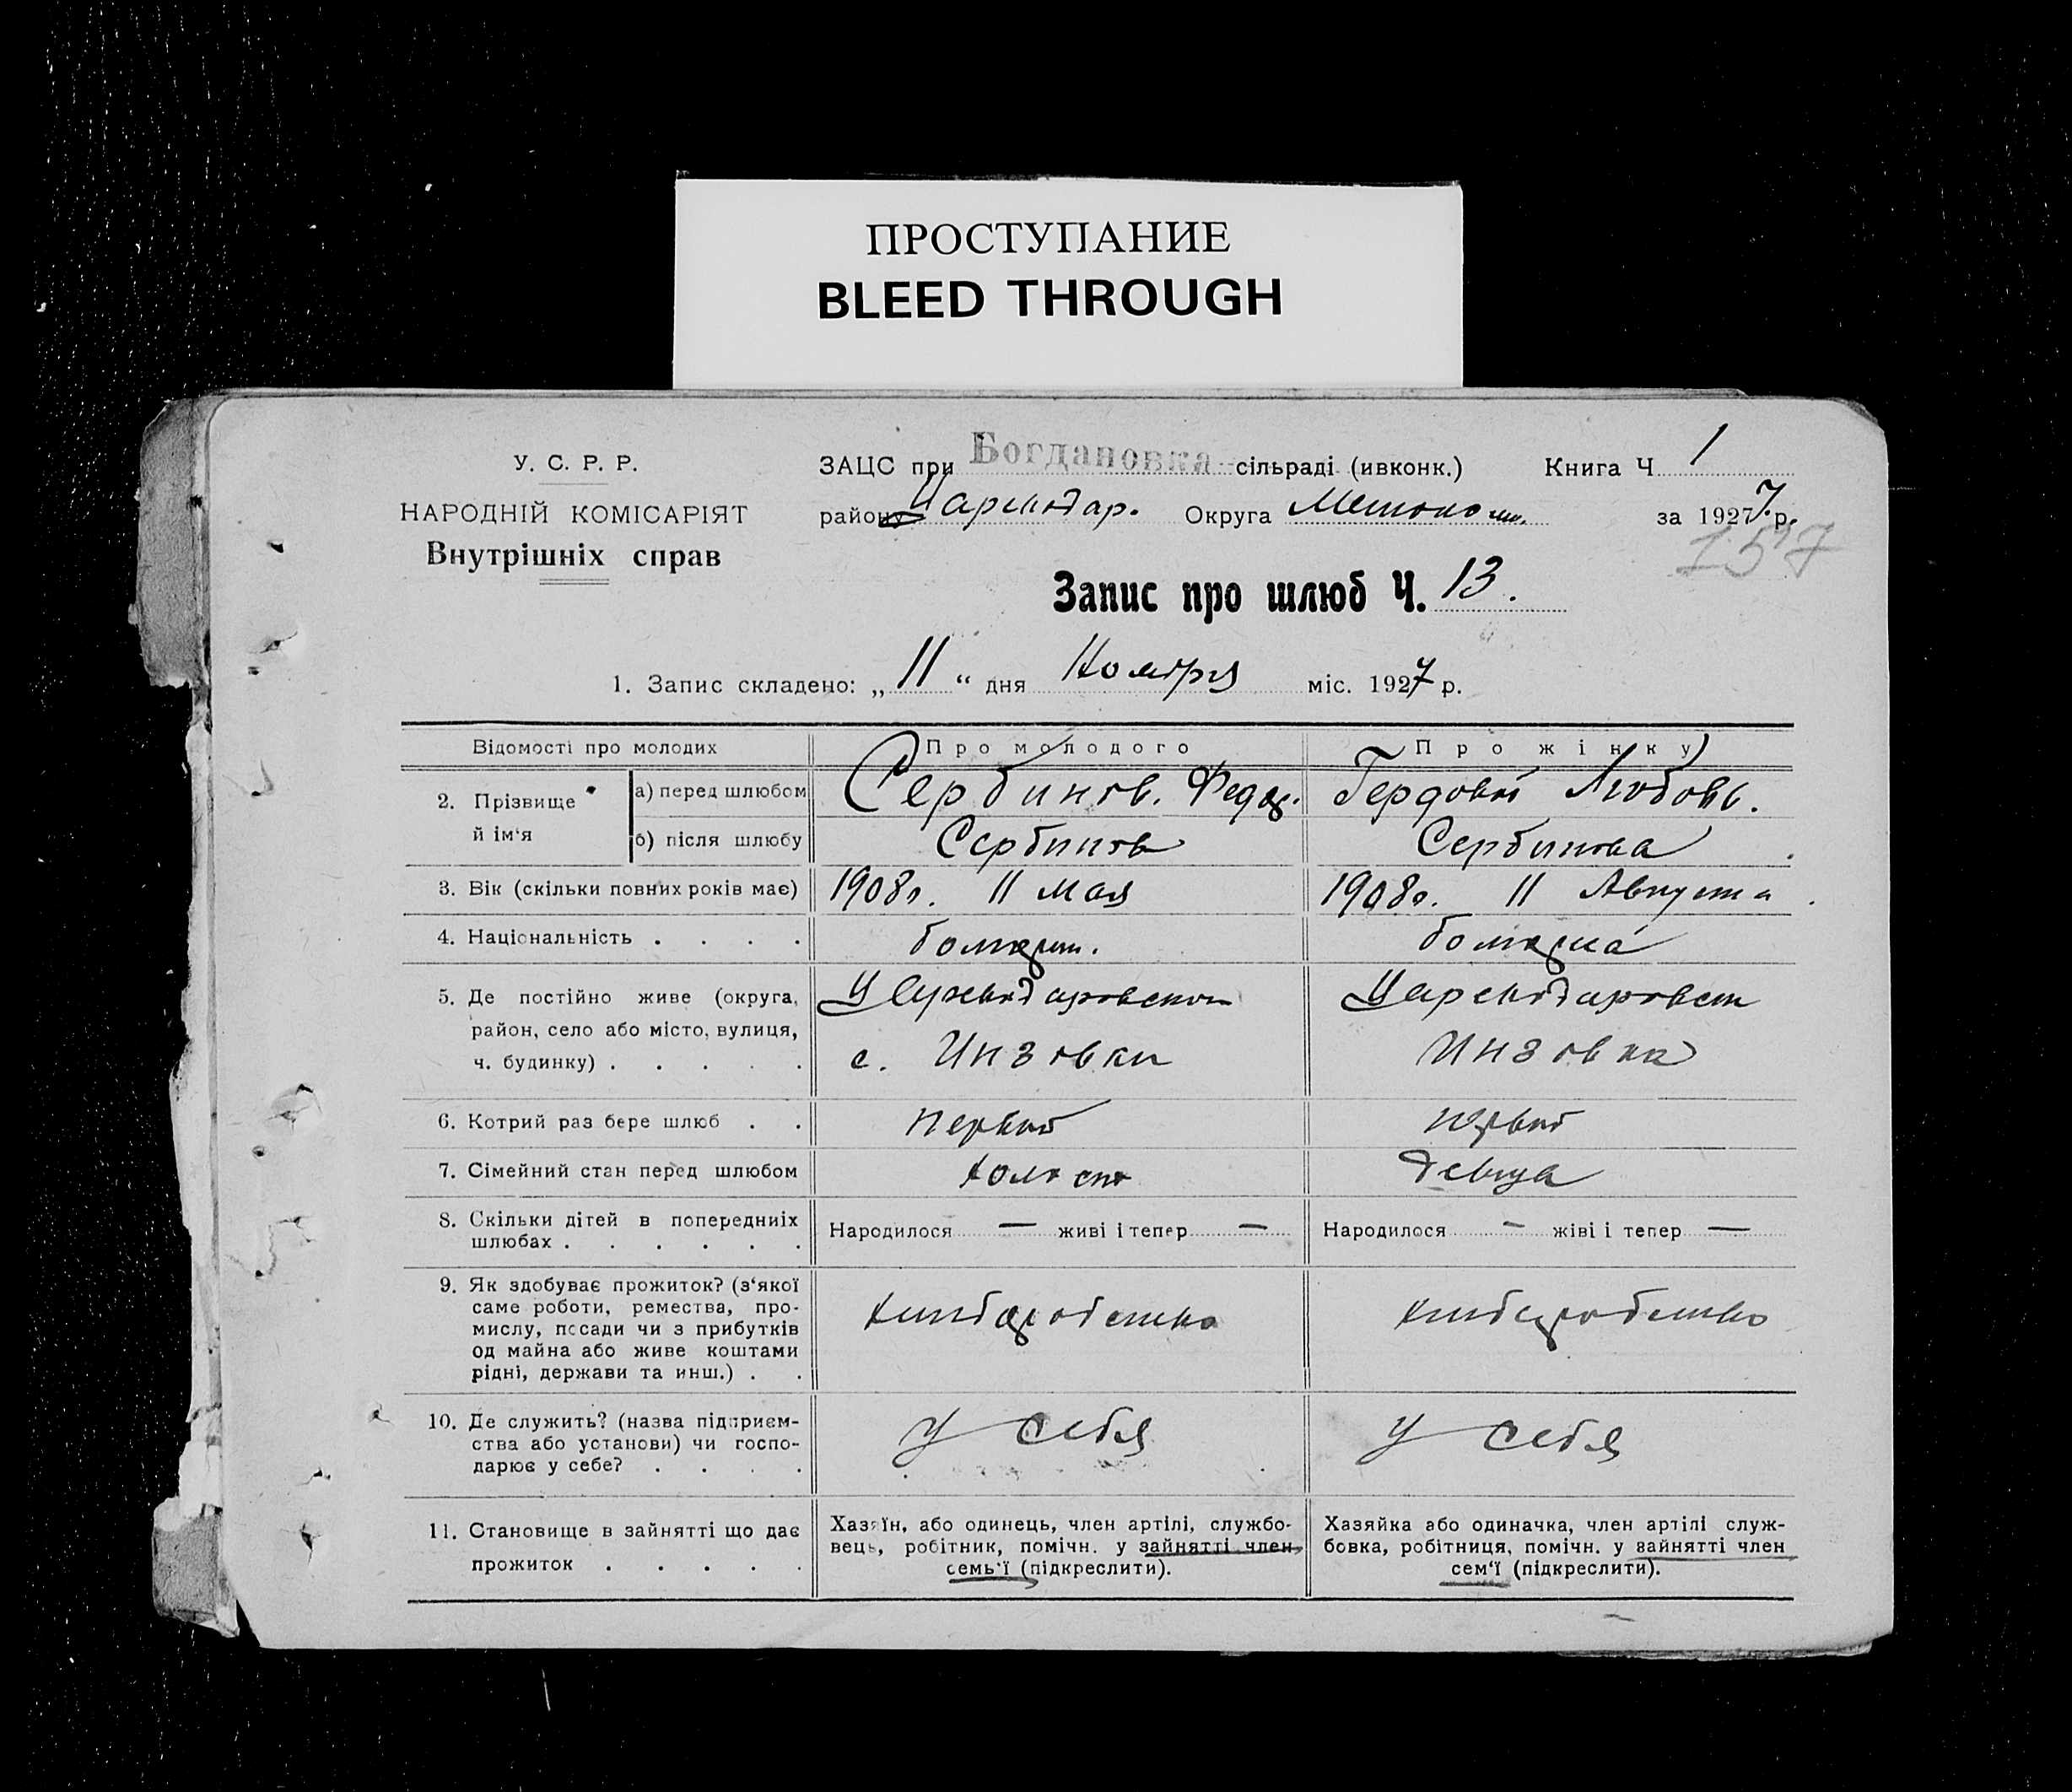 ПРОСТУПАНИЕ
BLEED THROUGH
У. С. Р. Р.
НАРОДНІЙ КОМІСАРІЯТ
Внутрішніх справ
ЗАЦС при Богдановка сільраді (ивконк.) Книга Ч 1
району Царенодар. Округа за 1927 р.
157
Запис про шлюб Ч. 13.
1. Запис складено: „ 11 “ дня Ноября міс. 1927 р.
Відомості про молодих Про молодого Про жінку
2. Прізвище й ім‘я
а) перед шлюбом Сербинов. Федор. Гердова Любовь.
б) після шлюбу Сербинов Сербинова
3. Вік (скільки повних років має) 1908г. 11 мая 1908г. 11 Августа
4. Національність . . . . болгарин. болгарка
5. Де постійно живе (округа,
район, село або місто, вулиця,
ч. будинку) . . . . .
с. Инзовки Инзовка
6. Котрий раз бере шлюб . . первый первый
7. Сімейний стан перед шлюбом холост девица
8. Скільки дітей в попередниіх
шлюбах . . . . . .
Народилося — живі і тепер — Народилося — жіві і тепер —
9. Як здобуває прожиток? (з‘якої
саме роботи, ремества, про-
мислу, посади чи з прибутків
од майна або живе коштами
рідні, держави та инш.) . .
хлебаробство хлебаробство
10. Де служить? (назва підприєм-
ства або установи) чи госпо-
дарює у себе? . . . .
у себя у себя
11. Становище в зайнятті що дає
прожиток . . . . .
Хазяїн, або одинець, член артілі, службо-
вець, робітник, помічн. у зайнятті член
семь‘ї (підкреслити).
Хазяйка або одиначка, член артілі служ-
бовка, робітниця, помічн. у зайнятті член
сем‘ї (підкреслити).